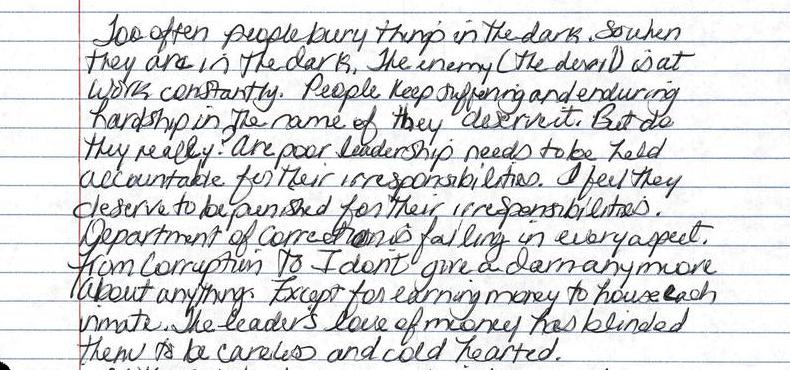 Too often people bury things in the dark. So when
they are in the dark, The enemy (the devil) is at
work constantly. People keep suffering and enduring
hardship in the name of they deserve it. But do
they really? Are poor leadership needs to be held
accountable for their irresponsibilities. I feel they
deserve to be punished for their irresponsibilities.
Department of Corrections is failing in every aspect.
From Corruption To I dont give a darn any more
about anything. Except for earning money to house each
inmate. The leader's love of money has blinded
them to be careless and cold hearted.